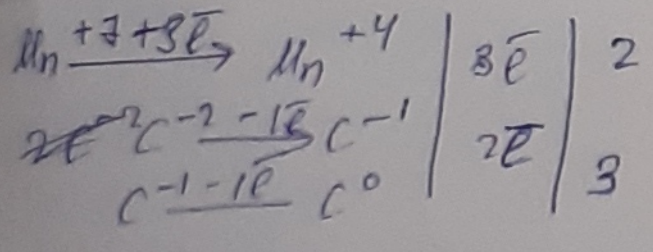 Mn +7 +3e̅ → Mn +4 | 3e̅ | 2
C −2 −1e̅ → C −1 | 2e̅ | 3
C −1 −1e̅ — C 0